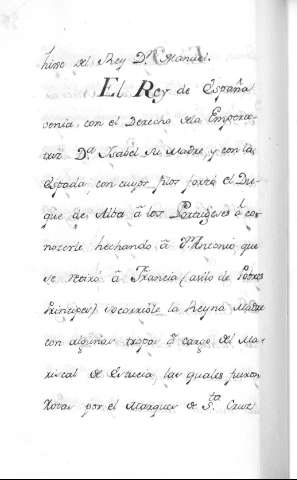 hisse del Rey Dn. Manuel.
El Rey de España
venia con el Derecho de la Empera-
triz Da. Isabel su Madre, y con la
Espada, con cuyos filos forzó el Du-
que de Alba â los Portugeses â co-
nocerle hechando â Dn. Antonio que
se retiró â Francia (asilo de Pobres
Principes) socorriòle la Reyna Madre
con algunas tropas â cargo del Ma-
riscal de las quales fueron
por el Marques de Sta. Cruz